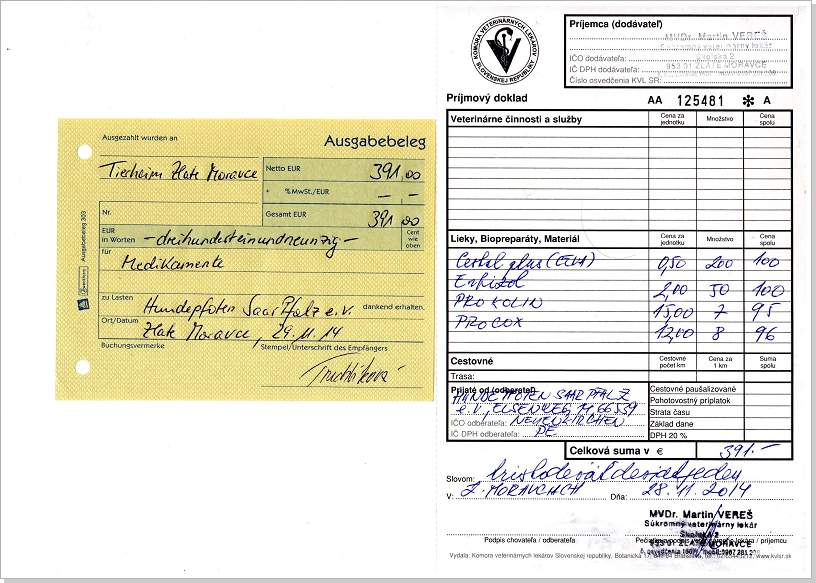 Ausgezahlt wurden an
Ausgabebeleg
Tierheim Zlate Moravce
Netto EUR 391,00
+ % MwSt./EUR – –
Nr.
Gesamt EUR 391 00
EUR in Worten – dreihunderteinundneunzig –
Cent wie oben
für
Medikamente
zu Lasten
Hundepfoten SaarPfalz e.V. dankend erhalten.
Ort/Datum
Zlate Moravce, 29.11.14
Buchungsvermerke
Stempel/Unterschrift des Empfängers
Ausgabebeleg 303
KOMORA VETERINÁRNYCH LEKÁROV
SLOVENSKEJ REPUBLIKY
Príjemca (dodávateľ)
MVDr. Martin VEREŠ
Súkromný veterinárny lekár
Školská 2
IČO dodávateľa:
953 01 ZLATÉ MORAVCE
IČ DPH dodávateľa:
Číslo osvedčenia KVL SR:
Príjmový doklad AA 125481 ✻ A
Veterinárne činnosti a služby
Cena za jednotku
Množstvo
Cena spolu
Lieky, Biopreparáty, Materiál
Cena za jednotku
Množstvo
Cena spolu
Cestal plus (CEVA) 0,50 200 100
2,00 50 100
PROKOLIN 15,00 7 95
PROCOX 12,00 8 96
Cestovné
Cestovné počet km
Cena za 1 km
Suma spolu
Trasa:
Prijaté od (odberateľ)
HUNDEPFOTEN SAARPFALZ
e.V., 66539
NEUENKIRCHEN
Cestovné paušalizované
Pohotovostný príplatok
Strata času
Základ dane
DPH 20 %
IČO odberateľa:
IČ DPH odberateľa:
Celková suma v € 391.–
Slovom:
V: Z. MORAVCIACH Dňa: 28.11.2014
MVDr. Martin VEREŠ
Súkromný veterinárny lekár
Školská 2
953 01 ZLATÉ MORAVCE
Podpis chovateľa / odberateľa
Vydala: Komora veterinárnych lekárov Slovenskej republiky, Botanická 17, www.kvlsr.sk